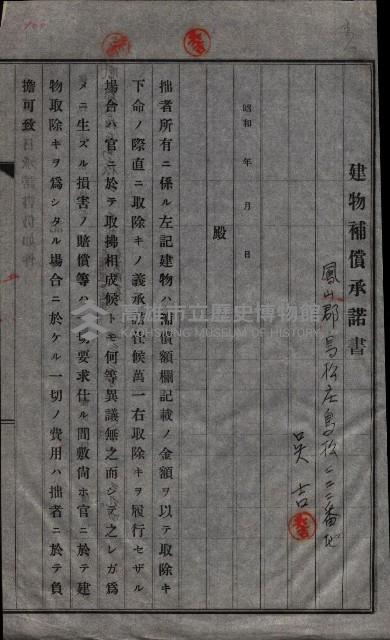 建物補償承諾書
鳳山郡鳥松庄鳥松二二二番地
吳吉
昭和 年 月 日
殿
拙者所有ニ係ル左記建物ハ補償額欄記載ノ金額ヲ以テ取除キ
下命ノ際直ニ取除キノ義承諾仕候萬一右取除キヲ履行セザル
場合ハ官ニ於テ取拂相成候トモ何等異議無之而シテ之レガ爲
メニ生ズル損害ノ賠償等ハ一切要求仕ル間敷尙ホ官ニ於テ建
物取除キヲ爲シタル場合ニ於ケル一切ノ費用ハ拙者ニ於テ負
擔可致
高雄市立歷史博物館
KAOHSIUNG MUSEUM OF HISTORY